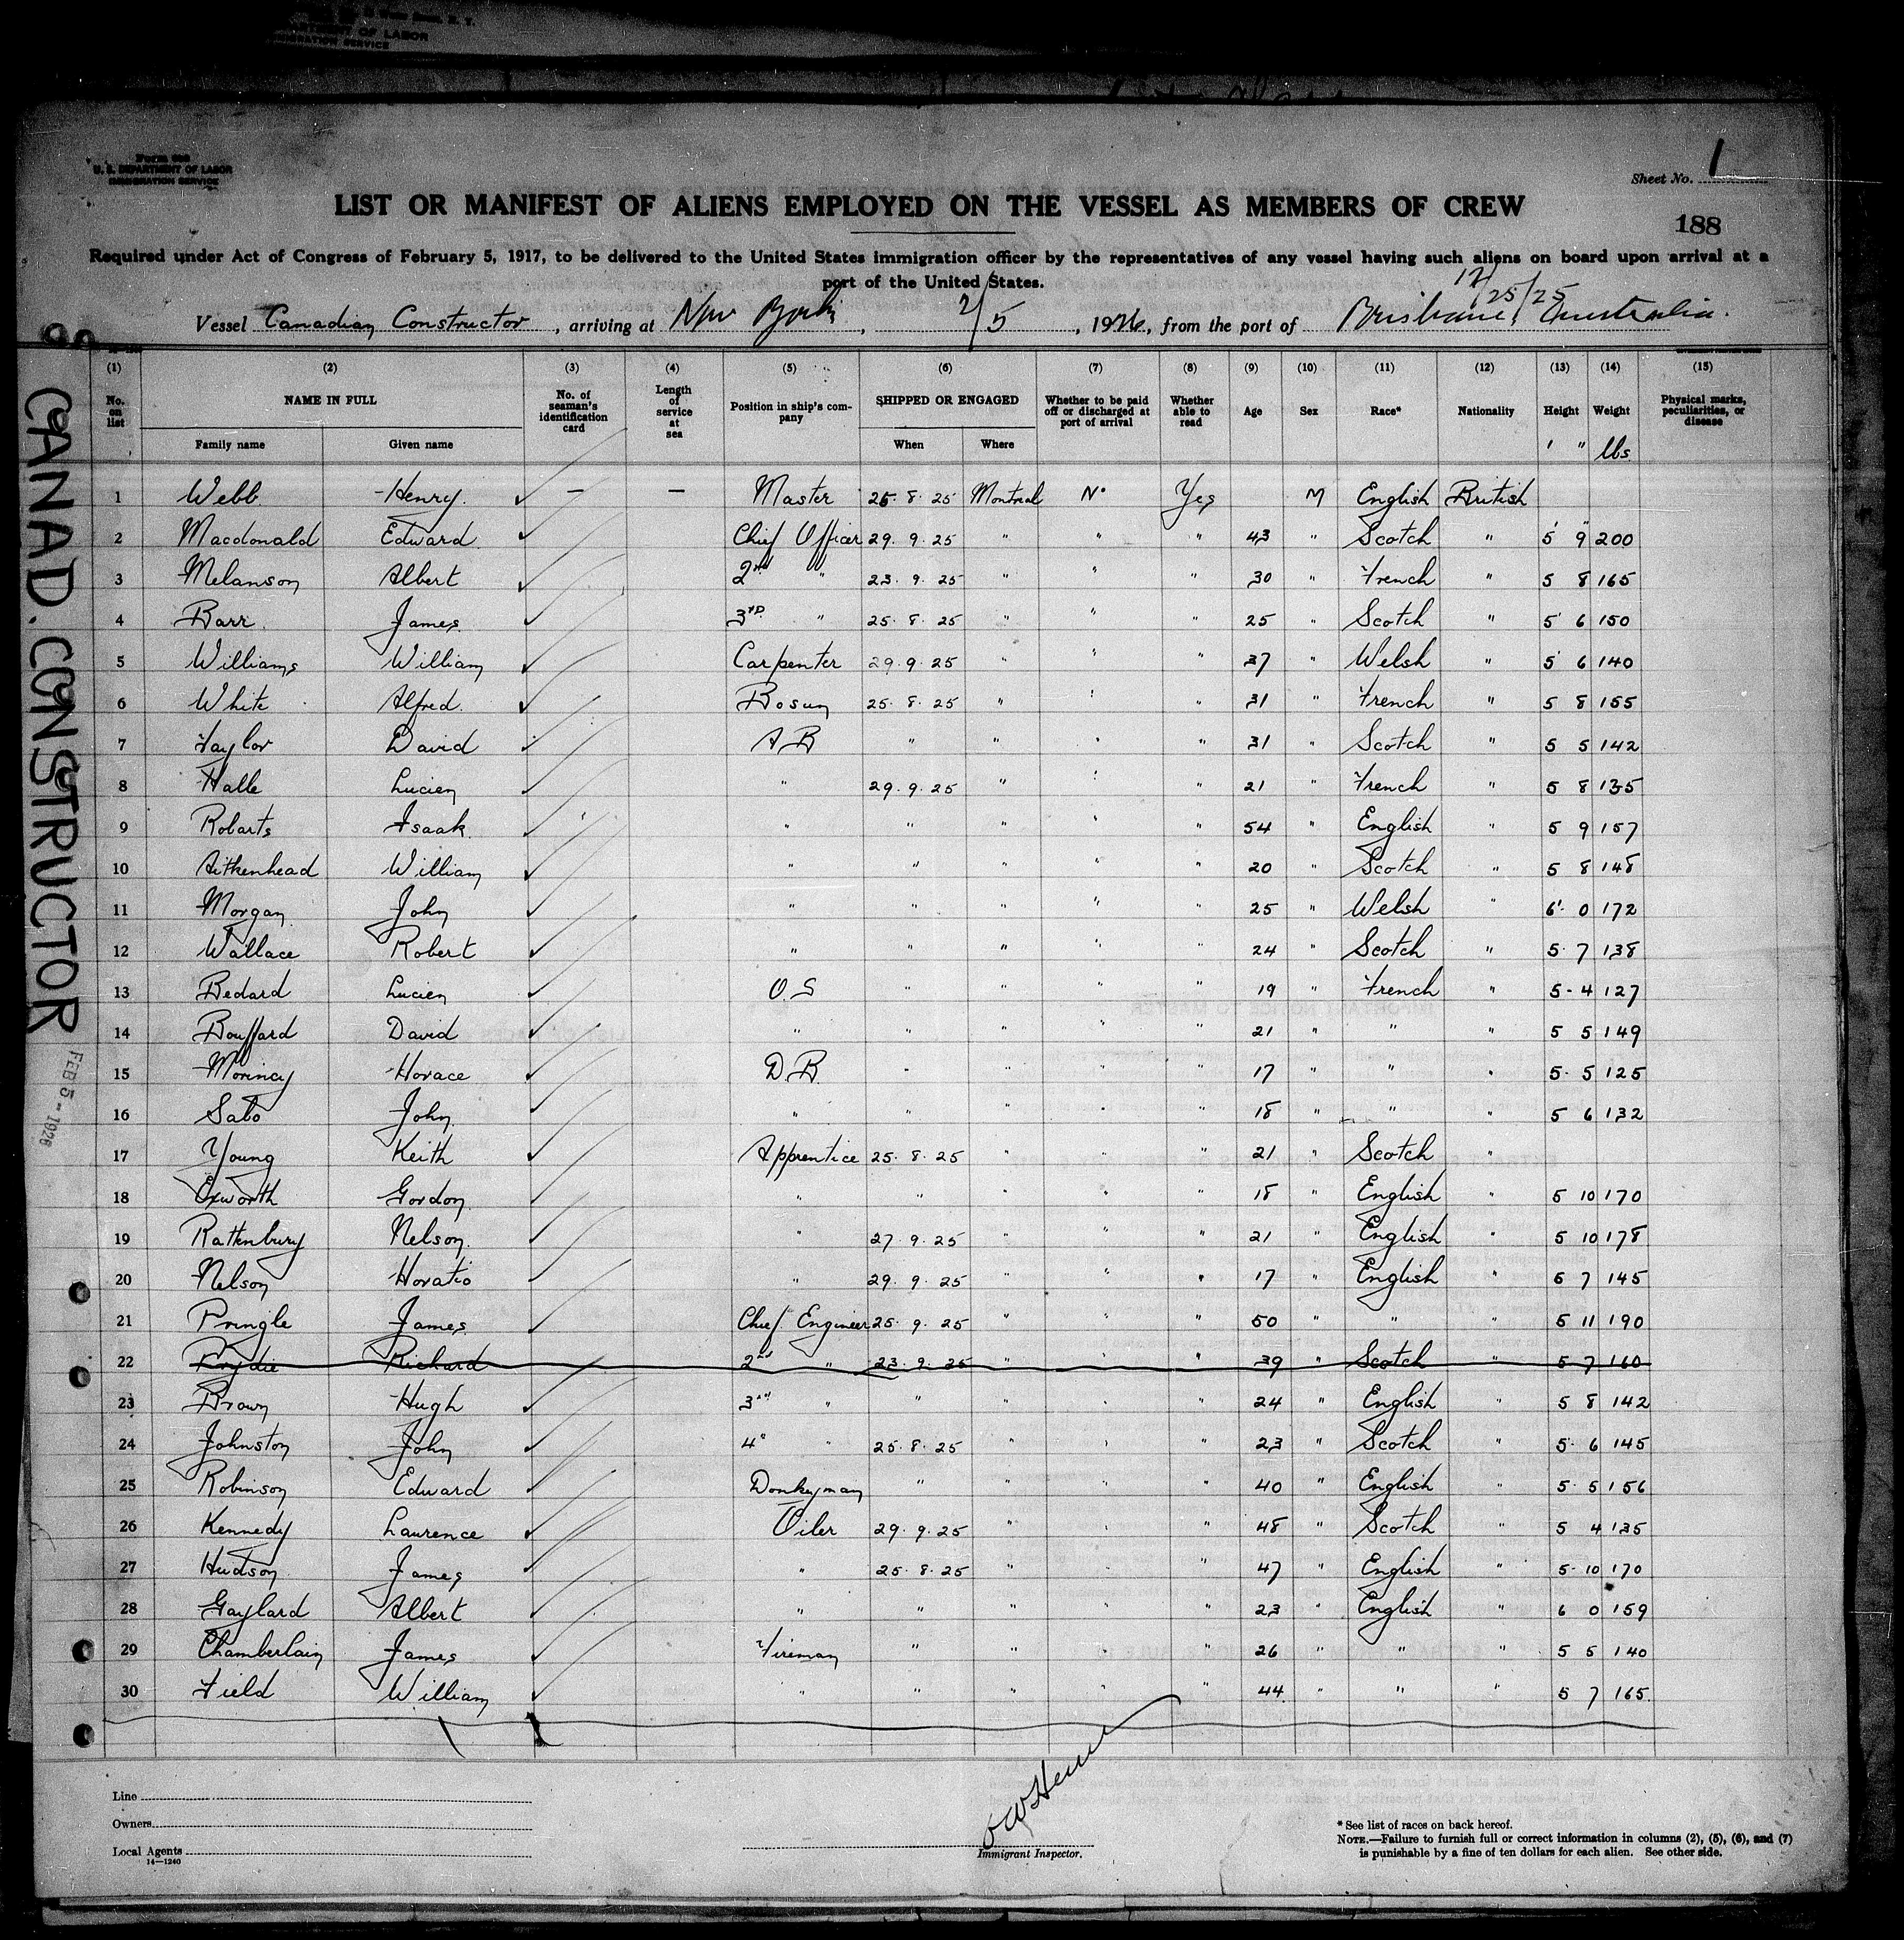 Form 680
U. S. DEPARTMENT OF LABOR
IMMIGRATION SERVICE
Sheet No. 1
LIST OR MANIFEST OF ALIENS EMPLOYED ON THE VESSEL AS MEMBERS OF CREW
188
Required under Act of Congress of February 5, 1917, to be delivered to the United States immigration officer by the representatives of any vessel having such aliens on board upon arrival at a
port of the United States.
12/25/25
Vessel Canadian Constructor, arriving at New York, 2/5, 1926, from the port of Brisbane, Australia.
CANAD. CONSTRUCTOR
FEB 5 - 1926
(1) (2) (3) (4) (5) (6) (7) (8) (9) (10) (11) (12) (13) (14) (15)
No. on list NAME IN FULL No. of seaman's identification card Length of service at sea Position in ship's company SHIPPED OR ENGAGED Whether to be paid off or discharged at port of arrival Whether able to read Age Sex Race* Nationality Height Weight Physical marks, peculiarities, or disease
Family name Given name When Where ' " lbs.
1 Webb Henry. ✓ — — Master 25. 8. 25 Montreal No Yes M English British
2 Macdonald Edward ✓ Chief Officer 29. 9. 25 " " " 43 " Scotch " 5' 9" 200
3 Melanson Albert ✓ 2nd " 23. 9. 25 " " " 30 " French " 5 8 165
4 Barr. James ✓ 3RD " 25. 8. 25 " " " 25 " Scotch " 5 6 150
5 Williams William ✓ Carpenter 29. 9. 25 " " " 37 " Welsh " 5 6 140
6 White Alfred. ✓ Bosun 25. 8. 25 " " " 31 " French " 5 8 155
7 Taylor David ✓ A B " " " " 31 " Scotch " 5 5 142
8 Halle Lucien ✓ " 29. 9. 25 " " " 21 " French " 5 8 135
9 Robarts Isaak. ✓ " " " " " 54 " English " 5 9 157
10 Aitkenhead William ✓ " " " " " 20 " Scotch " 5 8 148
11 Morgan John ✓ " " " " " 25 " Welsh " 6 0 172
12 Wallace Robert ✓ " " " " " 24 " Scotch " 5 7 138
13 Bedard Lucien ✓ O. S " " " " 19 " French " 5-4 127
14 Bouffard David ✓ " " " " " 21 " " " 5 5 149
15 Morincy Horace ✓ D. B. " " " " 17 " " " 5 5 125
16 John ✓ " " " " " 18 " " " 5 6 132
17 Young Keith ✓ Apprentice 25. 8. 25 " " " 21 " Scotch "
18 Exworth Gordon ✓ " " " " " 18 " English " 5 10 170
19 Rattenbury Nelson. ✓ " 27. 9. 25 " " " 21 " English " 5 10 178
20 Nelson Horatio ✓ " 29. 9. 25 " " " 17 " English " 5 7 145
21 Pringle James ✓ Chief Engineer 25. 9. 25 " " " 50 " " " 5 11 190
22 Richard 2nd " 23. 9. 25 " " " 39 " Scotch " 5 7 160
23 Brown Hugh ✓ 3rd " " " " " 24 " English " 5 8 142
24 Johnston John ✓ 4" " 25. 8. 25 " " " 23 " Scotch " 5 6 145
25 Robinson Edward ✓ Donkeyman " " " " 40 " English " 5 5 156
26 Kennedy Laurence ✓ Oiler 29. 9. 25 " " " 48 " Scotch " 5 4 135
27 Hudson James ✓ " 25. 8. 25 " " " 47 " English " 5-10 170
28 Gaylard Albert ✓ " " " " " 23 " English " 6 0 159
29 Chamberlain James ✓ Fireman " " " " 26 " " " 5 5 140
30 Field William ✓ " " " " " 44 " " " 5 7 165.
Line
Owners
Local Agents
14—1240
Immigrant Inspector.
* See list of races on back hereof.
NOTE.—Failure to furnish full or correct information in columns (2), (5), (6), and (7)
is punishable by a fine of ten dollars for each alien. See other side.